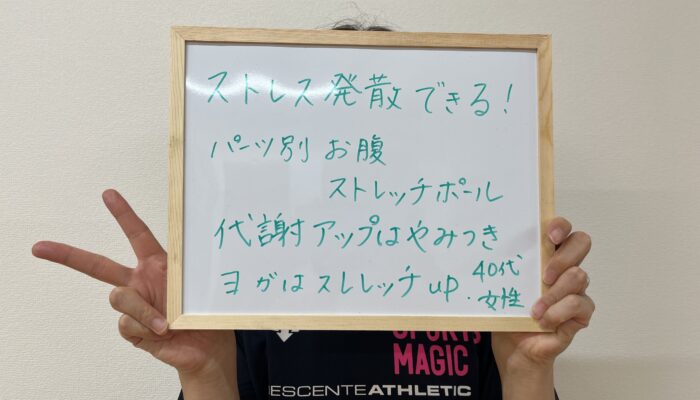 ストレス発散できる！
パーツ別 お腹
ストレッチポール
代謝アップはやみつき
ヨガはスレレッチup. 40代
女性
SPORTS
MAGIC
DESCENTEATHLETIC